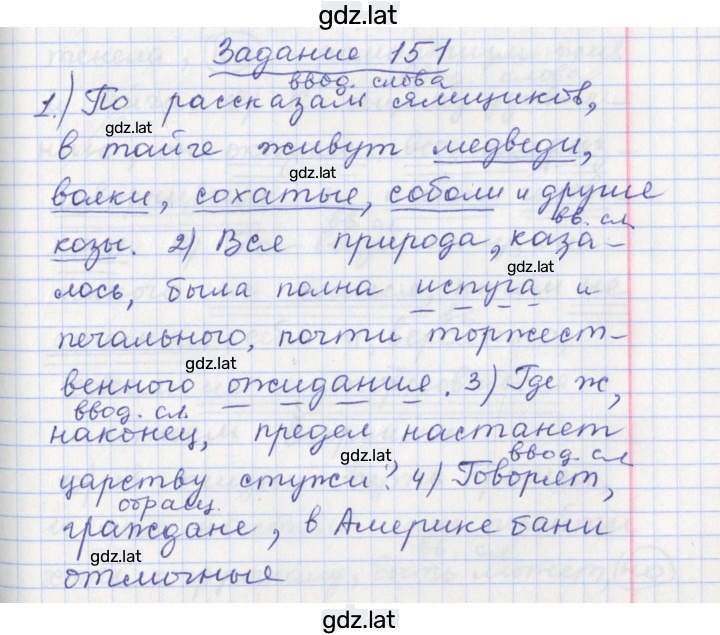 gdz.lat
Задание 151
ввод. слова
1.) По рассказам ямщиков,
gdz.lat
в тайге живут медведи,
gdz.lat
волки, сохатые, соболи и другие
вв. сл
козы. 2) Вся природа, каза-
gdz.lat
лось, была полна испуга и
печального, почти торжест-
gdz.lat
венного ожидания. 3) Где ж,
ввод. сл.
наконец, предел настанет
gdz.lat
ввод. сл
царству стужи? 4) Говорят,
обращ.
граждане, в Америке бани
gdz.lat
отличные
gdz.lat